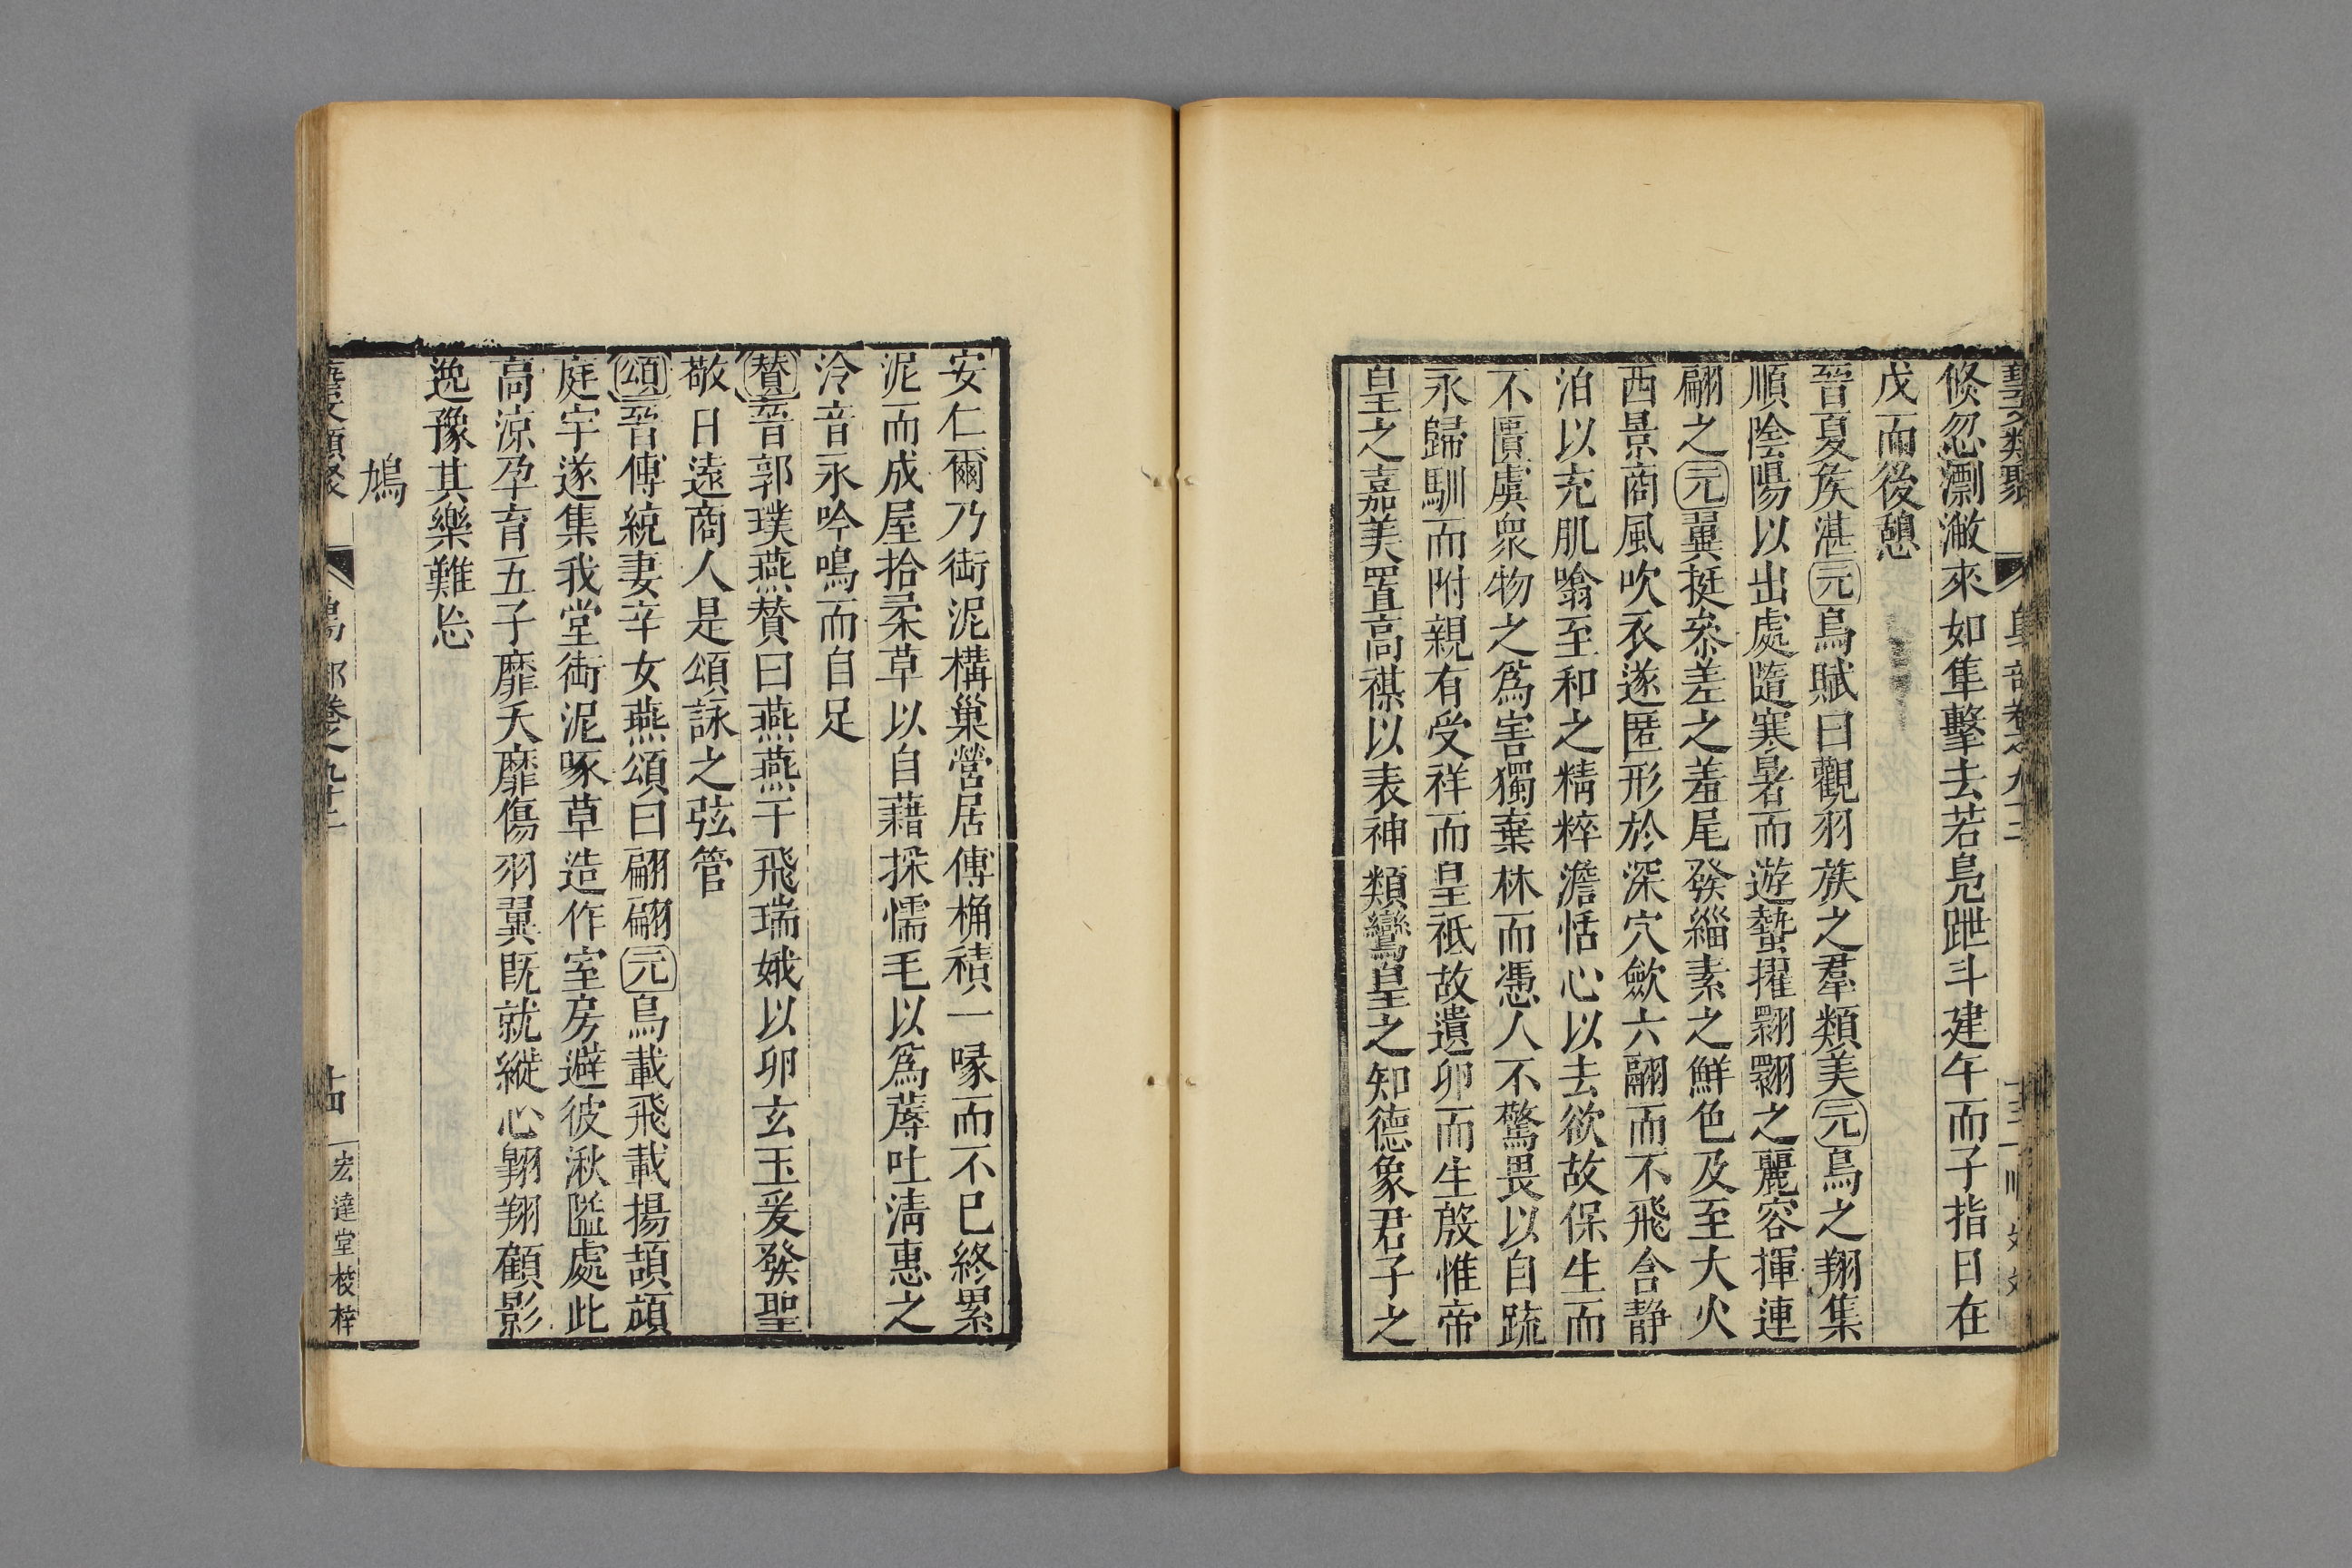 藝文類聚 鳥部卷之九十二
倏忽漂潎來如隼擊去若鳧跇斗建午而子指日在
戊而後憩
晉夏矦湛元鳥賦曰觀羽族之羣類美元鳥之翔集
順陰陽以出處隨寒暑而遊蟄擢翾翾之麗容揮連
翩之元翼挺叅差之羞尾發緇素之鮮色及至大火
西景商風吹衣遂匿形於深穴歛六翮而不飛含静
泊以充肌噏至和之精粹澹恬心以去欲故保生而
不匱虞衆物之爲害獨棄林而憑人不驚畏以自疏
永歸馴而附親有受祥而皇祇故遺卵而生殷惟帝
皇之嘉美置高禖以表神類鸞皇之知德象君子之
安仁爾乃銜泥構巢營居傅桷積一喙而不已終累
泥而成屋拾柔草以自藉採懦毛以爲蓐吐清惠之
泠音永吟鳴而自足
贊晉郭璞燕贊曰燕燕于飛瑞娥以卵玄玉爰發聖
敬日遠商人是頌詠之弦管
頌晉傅統妻辛女燕頌曰翩翩元鳥載飛載揚頡頏
庭宇遂集我堂銜泥啄草造作室房避彼湫隘處此
高凉孕育五子靡夭靡傷羽翼既就縱心翺翔顧影
逸豫其樂難忘
鳩
藝文類聚 鳥部卷之九十二 十四 宏達堂校梓